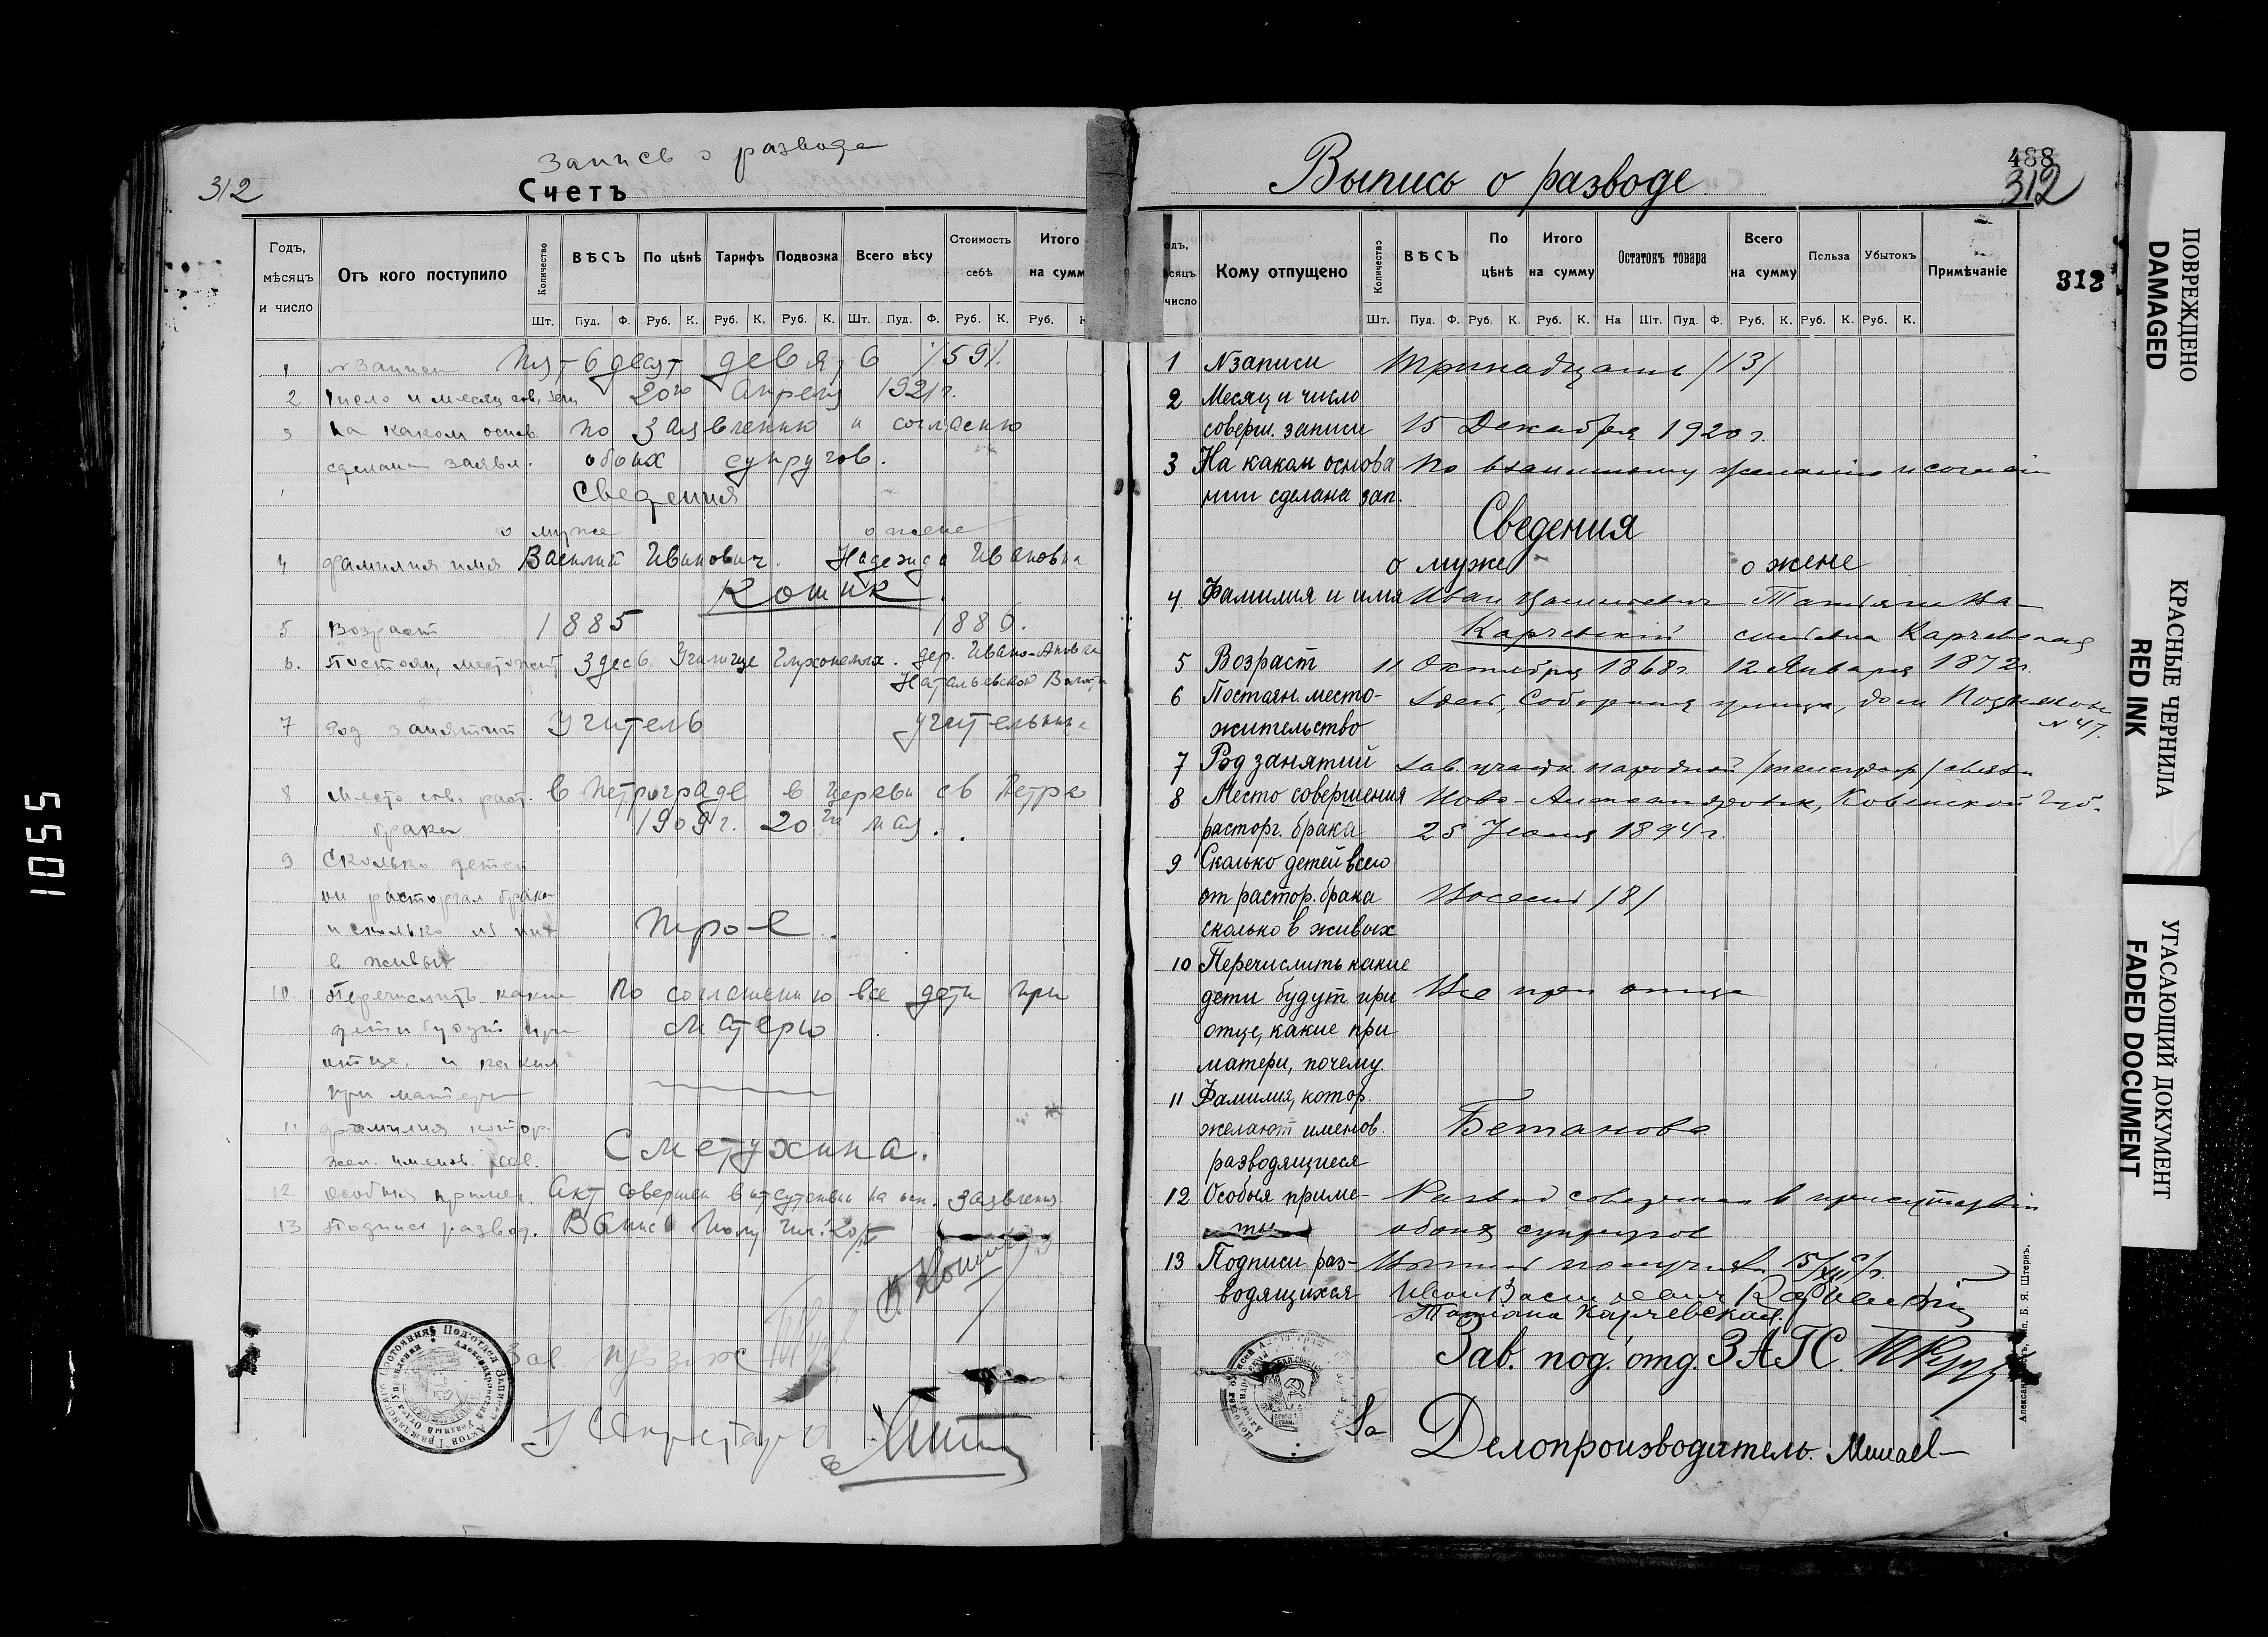 312
Запись о разводе
Счетъ
Годъ, мѣсяцъ и число
Отъ кого поступило
Количество
ВѢСЪ
По цѣнѣ
Тарифъ
Подвозка
Всего вѣсу
Стоимость себѣ
Итого на сумм
Шт. Пуд. Ф. Руб. К. Руб. К. Руб. К. Шт. Пуд. Ф. Руб. К. Руб. К
1 № записи Пятьдесят девять /59/.
2 Число и месяц сов. зап. 20го Апреля 1921 г.
3 На каком основ. по заявлению и согласию
сделана заявл. обоих супругов.
Сведения
о муже о жене
4 Фамилия имя Василий Иванович. Надежда Ивановна
Кошик.
5 Возраст 1885 1886.
6. Постоян. местожит. Здесь Училище Глухонемых. дер. Ивано-
Натальевской Волости
7 Род занятий Учитель учительница
8 Место сов. раст. в Петрограде в церкви св Петра
брака 1909 г. 20го мая.
9 Сколько детей
от расторгал брака
и сколько из них Трое.
в живых
10. Перечислить какие По соглашению все дети при
дети будут при матерью
отце, и какия
при матери
11 фамилия котор.
жел. именов. разв. Сметухина.
12 особыя примеч. Акт совершен в отсутствии на осн. заявления.
13 Подписи развод. Выпись получил: 20/IV
В. Кошик
Зав
Секретарь
Подотдел Записи Актов Гражданского Состояния
Александровский Уездный Отдел Управления
Выпись о разводе
488
312
312
одъ, сяцъ число
Кому отпущено
Количество
ВѢСЪ
По цѣнѣ
Итого на сумму
Остатокъ товара
Всего на сумму
Польза
Убытокъ
Примѣчаніе
Шт. Пуд. Ф. Руб. К. Руб. К. На Шт. Пуд. Ф. Руб. К. Руб. К. Руб. К.
1 № записи тринадцать /13/
2 Месяц и число
соверш. записи 15 Декабря 1920 г.
3 На каком основа- По взаимному желанию и согласи
нии сделана зап.
Сведения
о муже о жене
4. Фамилия и имя Иван Татьяна Ва-
Карчевский сильевна Карчевская
5 Возраст 11 Октября 1868 г. 12 Января 1872 г.
6 Постоян. место- Здесь, Соборная улица, дом
жительство № 47.
7 Род занятий Зав. народной связи
8 Место совершения Ново-Александровск, Ковенской Губ.
расторг. брака 25 1894 г.
9 Сколько детей всего
от растор. брака Восемь /8/
сколько в живых
10 Перечислить какие
дети будут при Все при отце
отце, какие при
матери, почему.
11 Фамилия, котор.
желают именов. Бетанова
разводящиеся
12 Особыя приме- Развод совершен в присутствіи
ты обоих супругов
13 Подписи раз- Выпись получил 15/XII
водящихся Иван Карчевский
Татиана Карчевская.
Зав. под. отд. ЗАГС.
За Делопроизводитель.
Б. Я. Штернъ.
ПОВРЕЖДЕНО
DAMAGED
КРАСНЫЕ ЧЕРНИЛА
RED INK
УГАСАЮЩИЙ ДОКУМЕНТ
FADED DOCUMENT
1055